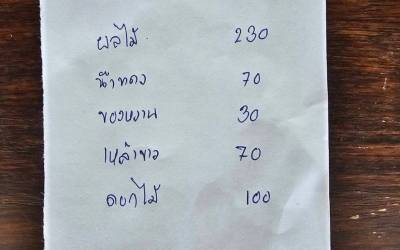 ผลไม้ 230
น้ำแดง 70
ของหวาน 30
เหล้าขาว 70
ดอกไม้ 100